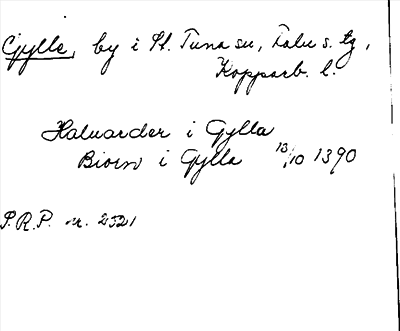 Gylle, by i St. Tuna sn, Falu s. tg,
Kopparb. l.
Haluarder i Gylla
Biorn i Gylla 13/10 1390
P.R.P. nr. 2521